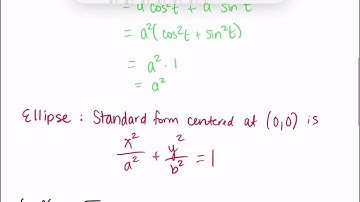 = a² cos²t + a² sin²t
= a² (cos²t + sin²t)
= a² · 1
= a²
Ellipse : Standard form centered at (0,0) is
x²/a² + y²/b² = 1